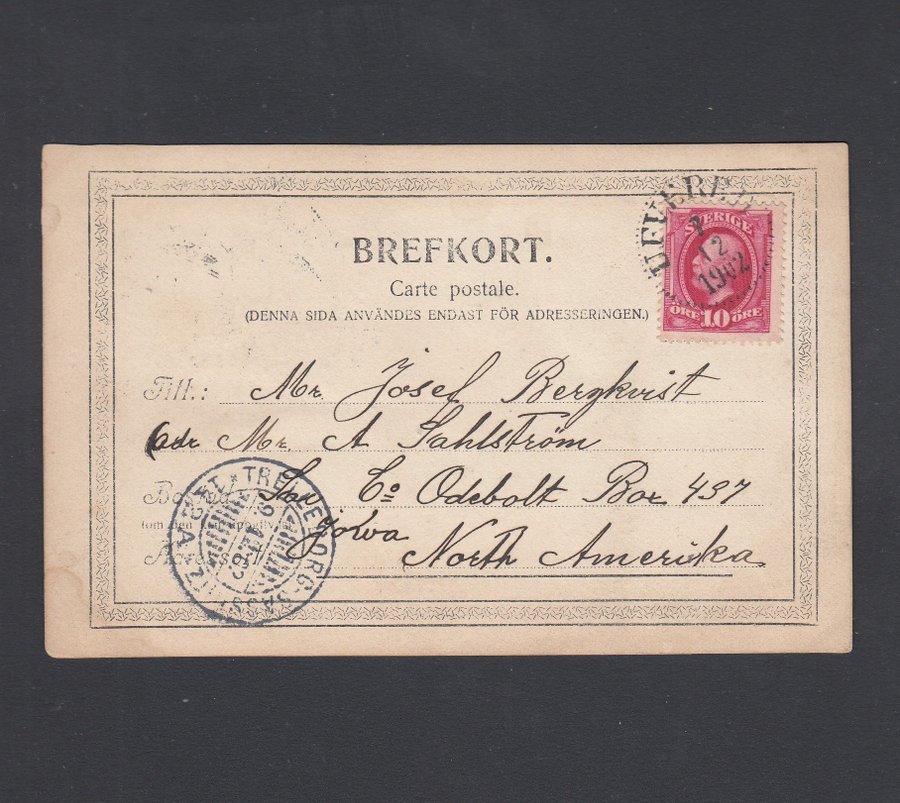 SVERIGE
7
12
1902
ÖRE 10 ÖRE
BREFKORT.
Carte postale.
(DENNA SIDA ANVÄNDES ENDAST FÖR ADRESSERINGEN.)
Till.: Mr Josef Bergkvist
adr Mr. A Sahlström
Sac Co Odebolt Box 437
Jowa
North Amerika
TRELLEBORG SASSNITZ